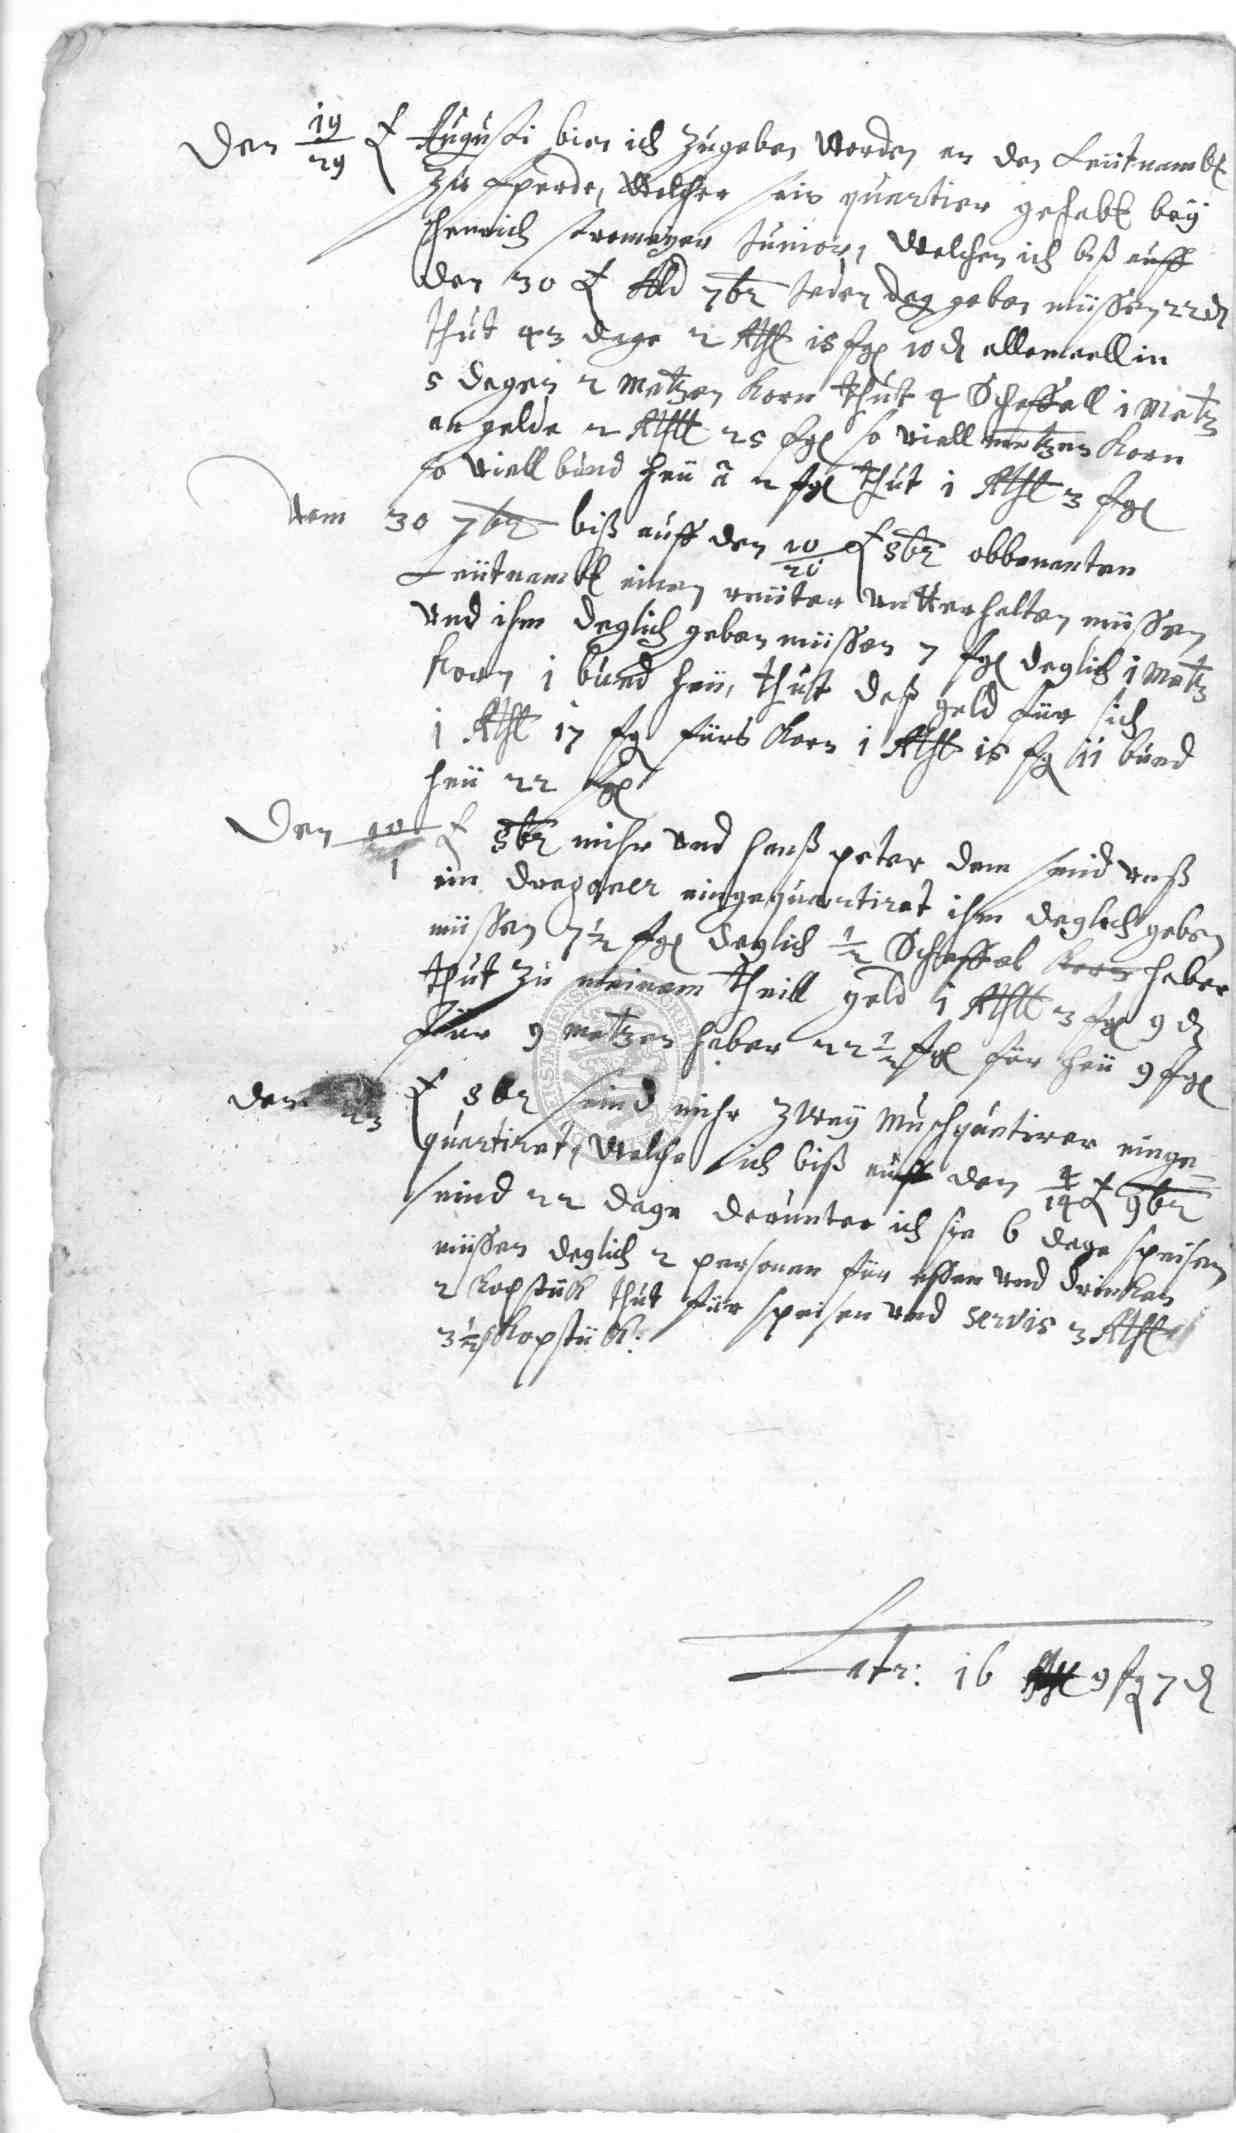 Den 19/29 Augusti bin ich zugeben worden an den Leütnambt
zu Pferde, welcher sein quartier gehabt beÿ
Henrich Junior, welchen ich biß auff
den 30 7br Jeden dag geben müssen 22 d
thut 43 dage 2 Rthl 18 fgl 10 d allemall in
5 dagen 2 Metzen Korn thut 4 Scheffell 1 Metz
an gelde 2 Rthll 25 fgl so viell metzen Korn
so viell bund heü a 2 fgl thut 1 Rthl 3 fgl
Vom 30 7br biß auff den 10/20 8br obbenanten
Leütnambt einen reüter Untterhalten müssen
Und ihm deglich geben müssen 7 fgl deglich 1 Metz
Korn 1 bund heü, thut daß geld für sich
1 Rthl 17 fgl fürs Korn 1 Rthl 18 fgl 11 bund
heü 22 fgl
Den 8br mihr Und hanß peter dem seind Unß
ein dragoner eingequartiret ihm deglich geben
müssen 7½ fgl deglich ½ Scheffel Korn haber
thut zu meinem theill geld 1 Rthll 3 fgl 9 d
für 9 metzen haber 22½ fgl für heü 9 fgl
den 23 8br seind mihr zweÿ Muschquetirer einge=
quartiret, welche ich biß auff den 4/14 9br
seind 22 dage darunter ich sie 6 dage speisen
müssen deglich 2 personen für essen Und drincken
2 Kopstück thut für speisen Und servis 3 Rthll
3½ Kopstück:
Latr: 16 Rthl 9 fgl 7 d